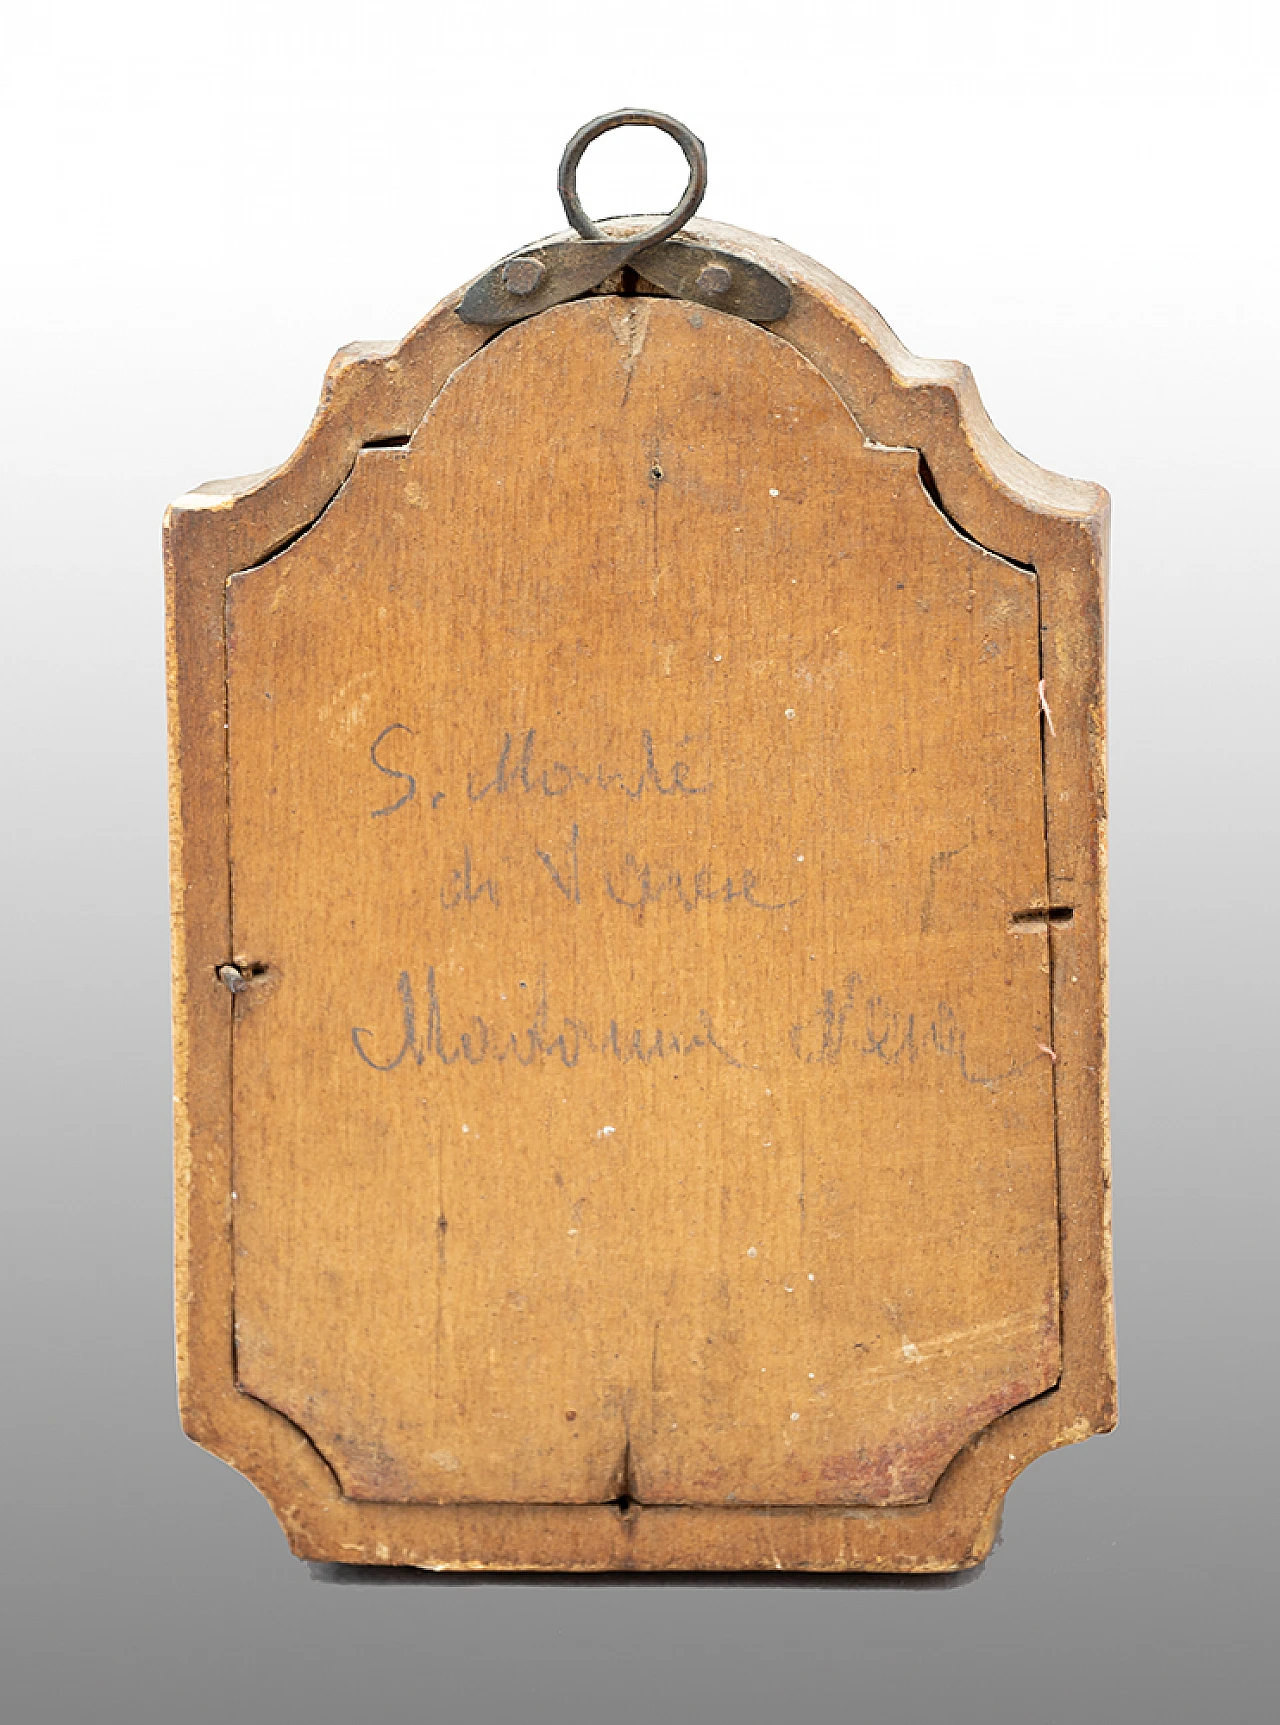 S. Monte
di Varese
Madonna Nera